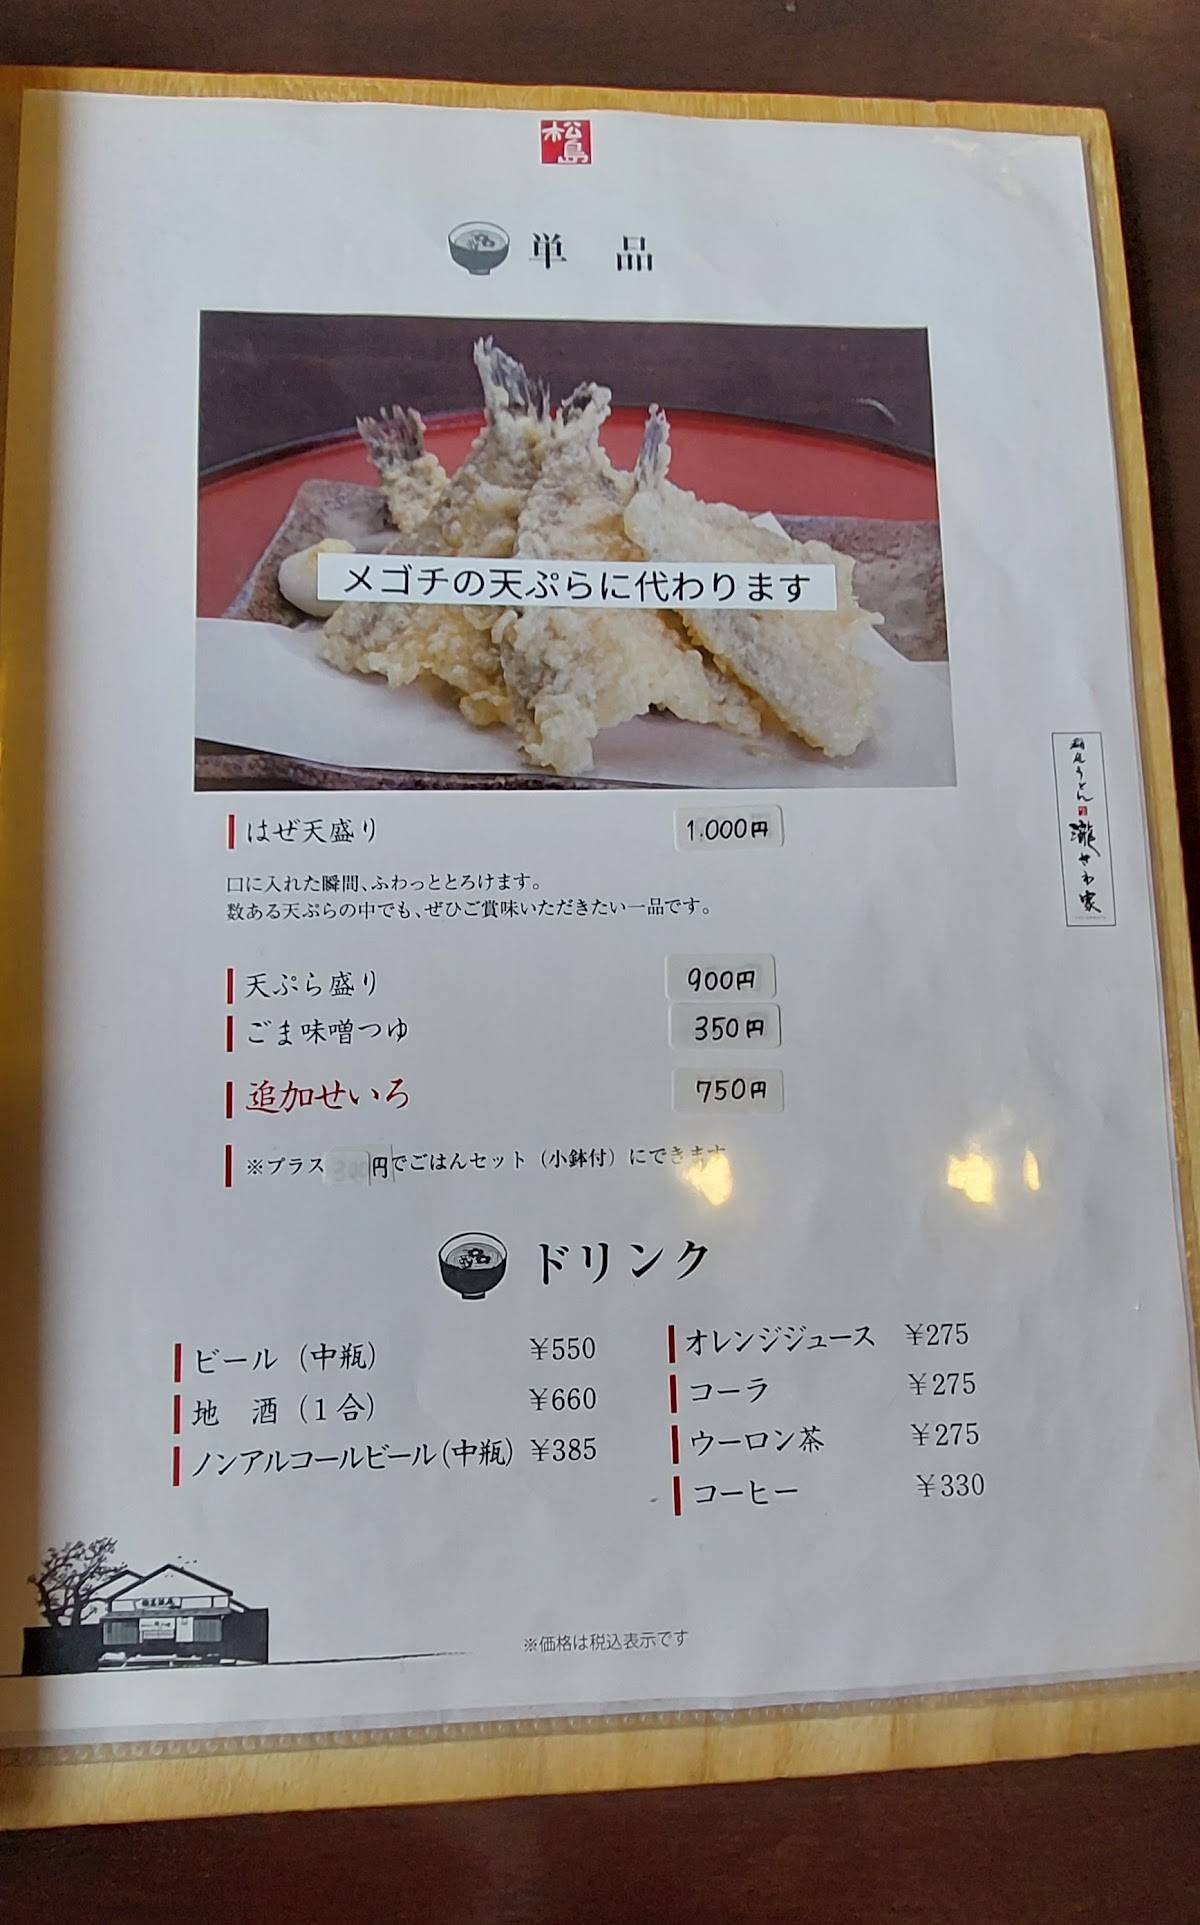 松島
単 品
メゴチの天ぷらに代わります
はぜ天盛り 1.000円
口に入れた瞬間、ふわっととろけます。
数ある天ぷらの中でも、ぜひご賞味いただきたい一品です。
天ぷら盛り 900円
ごま味噌つゆ 350円
追加せいろ 750円
※プラス 円でごはんセット（小鉢付）にできます
ドリンク
ビール（中瓶） ¥550
地 酒（1合） ¥660
ノンアルコールビール(中瓶) ¥385
オレンジジュース ¥275
コーラ ¥275
ウーロン茶 ¥275
コーヒー ¥330
うどん 瀧さわ家
※価格は税込表示です